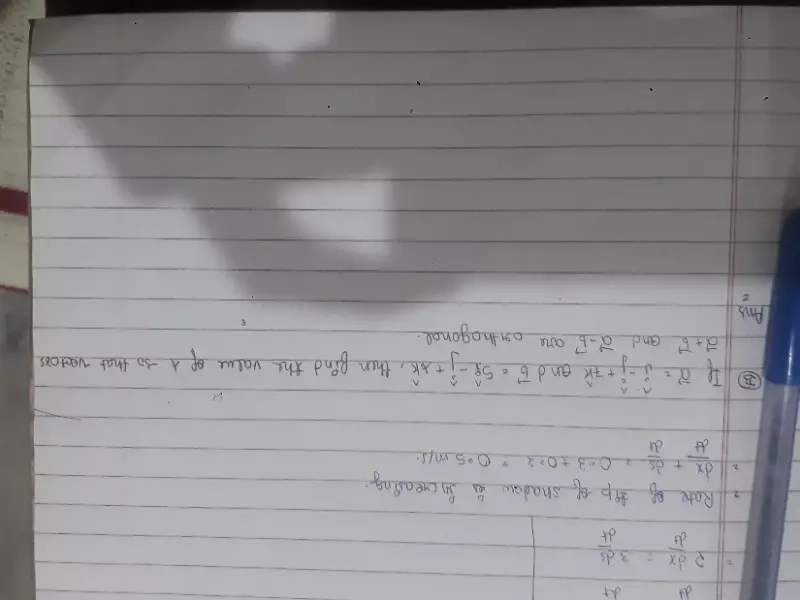 dt dt
= 2 dx/dt = 3 ds/dt
= Rate of tip of shadow is increasing.
= dx/dt + ds/dt = 0.3 + 0.2 = 0.5 m/s.
(B) If a⃗ = î - ĵ + 7k̂ and b⃗ = 5î - ĵ + λk̂, then find the value of λ so that vectors
a⃗ + b⃗ and a⃗ - b⃗ are orthogonal.
Ans =